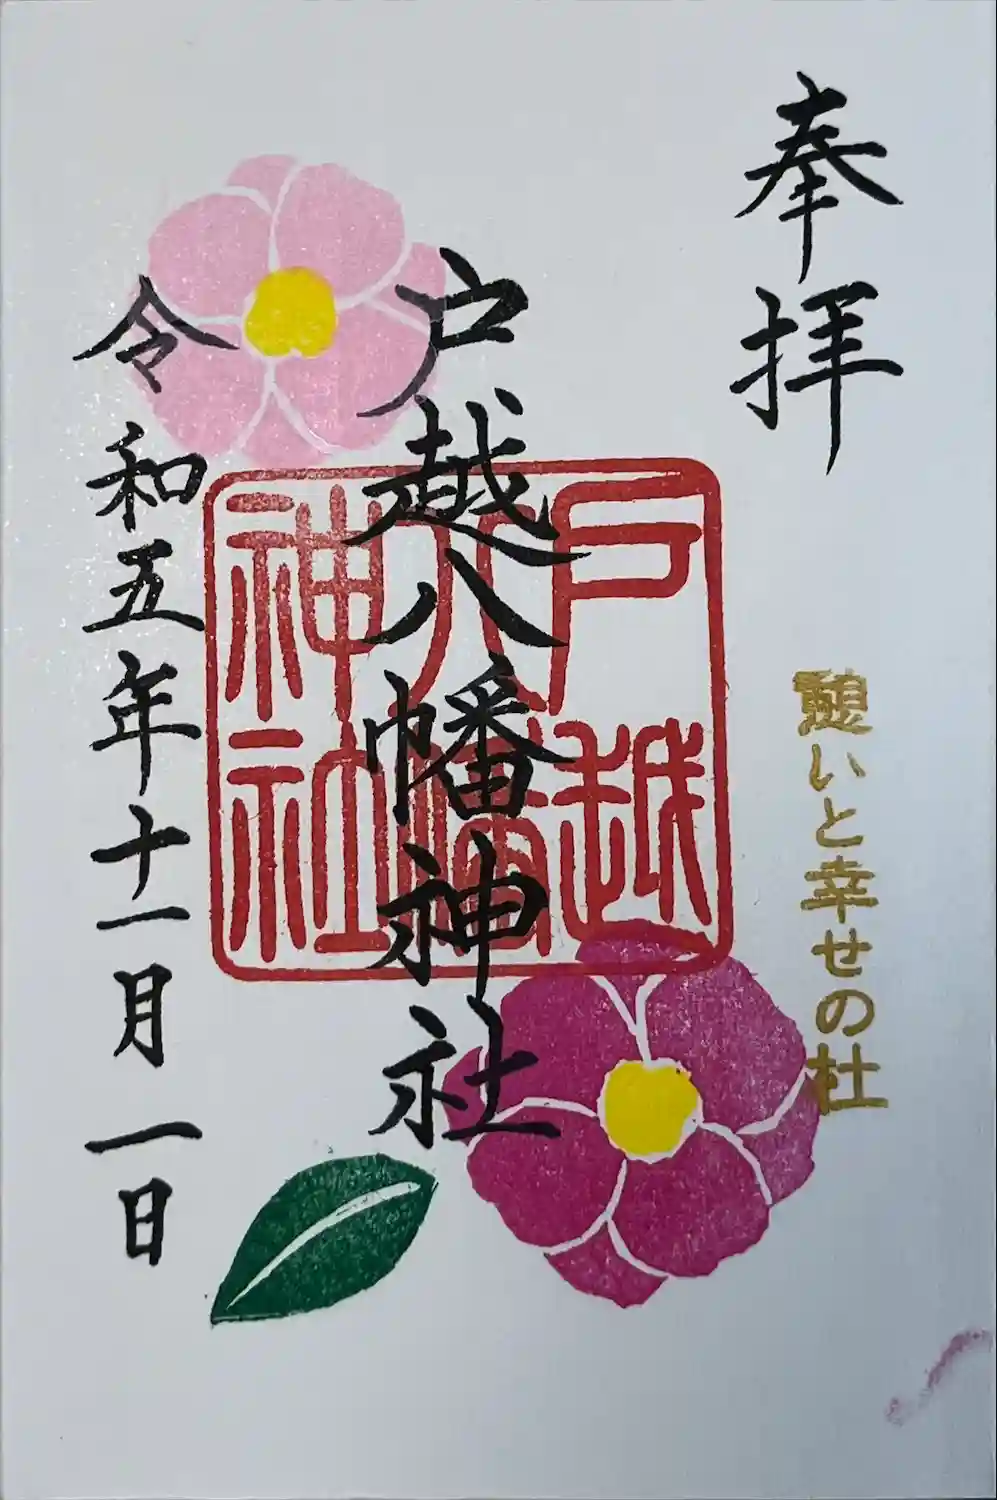 奉拝
憩いと幸せの杜
戸越八幡神社
戸越八幡神社
令和五年十一月一日